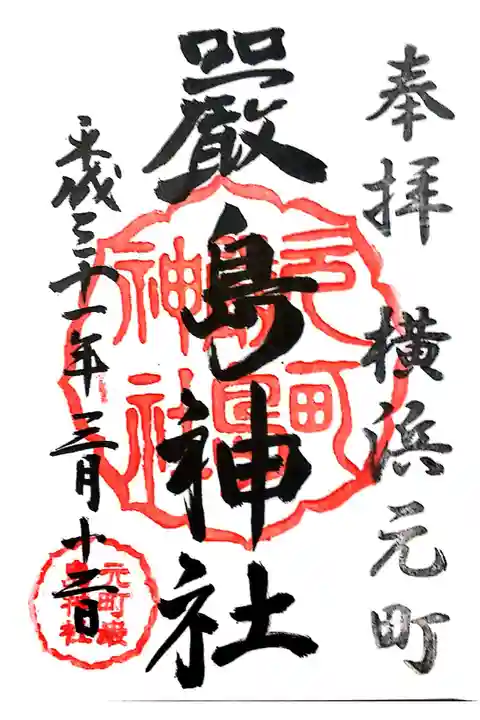 奉拝 横浜元町
嚴島神社
平成三十一年三月十二日
元町嚴
島神社